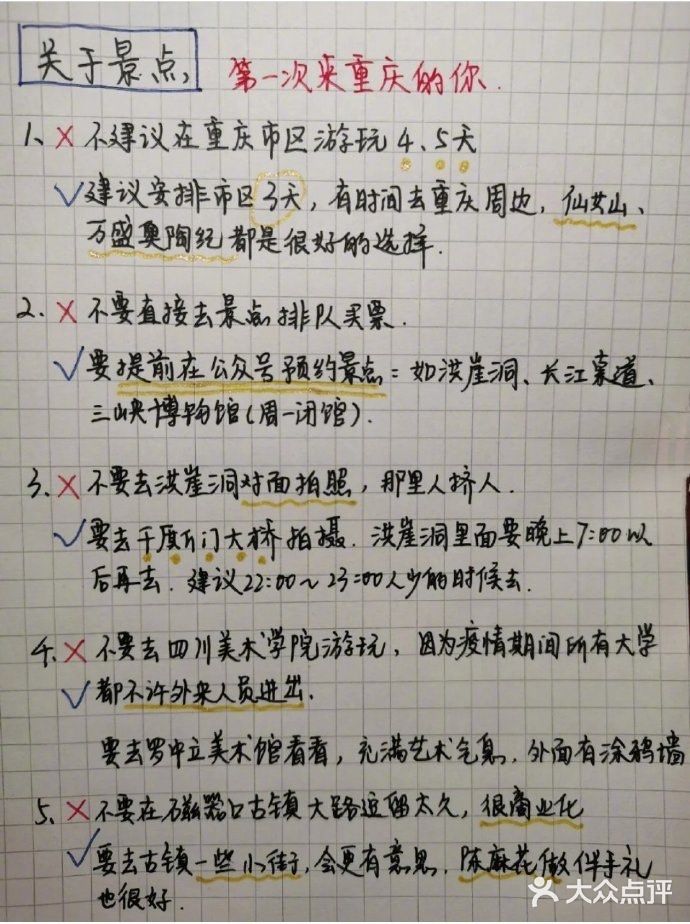 关于景点,
第一次来重庆的你.
1、✗ 不建议在重庆市区游玩4、5天
✓建议安排市区3天，有时间去重庆周边，仙女山、
万盛奥陶纪都是很好的选择.
2、✗ 不要直接去景点排队买票.
✓要提前在公众号预约景点：如洪崖洞、长江索道、
三峡博物馆(周一闭馆).
3、✗ 不要去洪崖洞对面拍照，那里人挤人.
✓要去千厮门大桥拍摄.洪崖洞里面要晚上7:00以
后再去.建议22:00~23:00人少的时候去.
4、✗ 不要去四川美术学院游玩，因为疫情期间所有大学
✓都不许外来人员进出.
要去罗中立美术馆看看，充满艺术气息，外面有涂鸦墙
5、✗ 不要在磁器口古镇大路逗留太久，很商业化
✓要去古镇一些小街，会更有意思，陈麻花做伴手礼
也很好.
大众点评